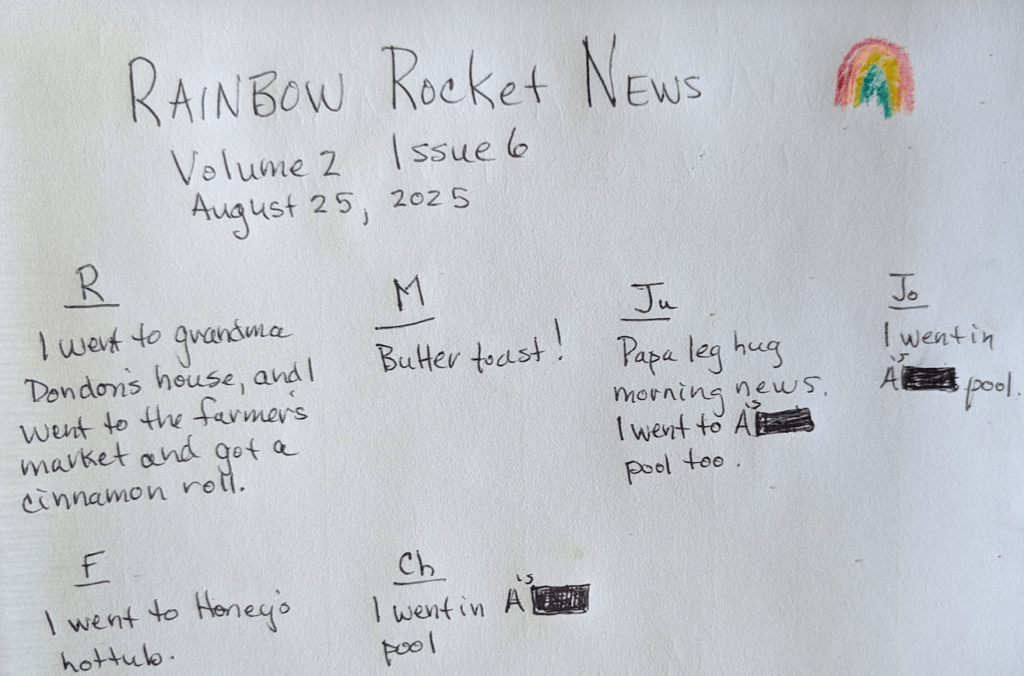 RAINBOW Rocket NEWS
Volume 2 Issue 6
August 25, 2025
R
I went to grandma
Dondon's house, and I
went to the farmer's
market and got a
cinnamon roll.
M
Butter toast!
Ju
Papa leg hug
morning news.
I went to A's
pool too.
Jo
I went in
A's pool.
F
I went to Honey's
hottub.
Ch
I went in A's
pool